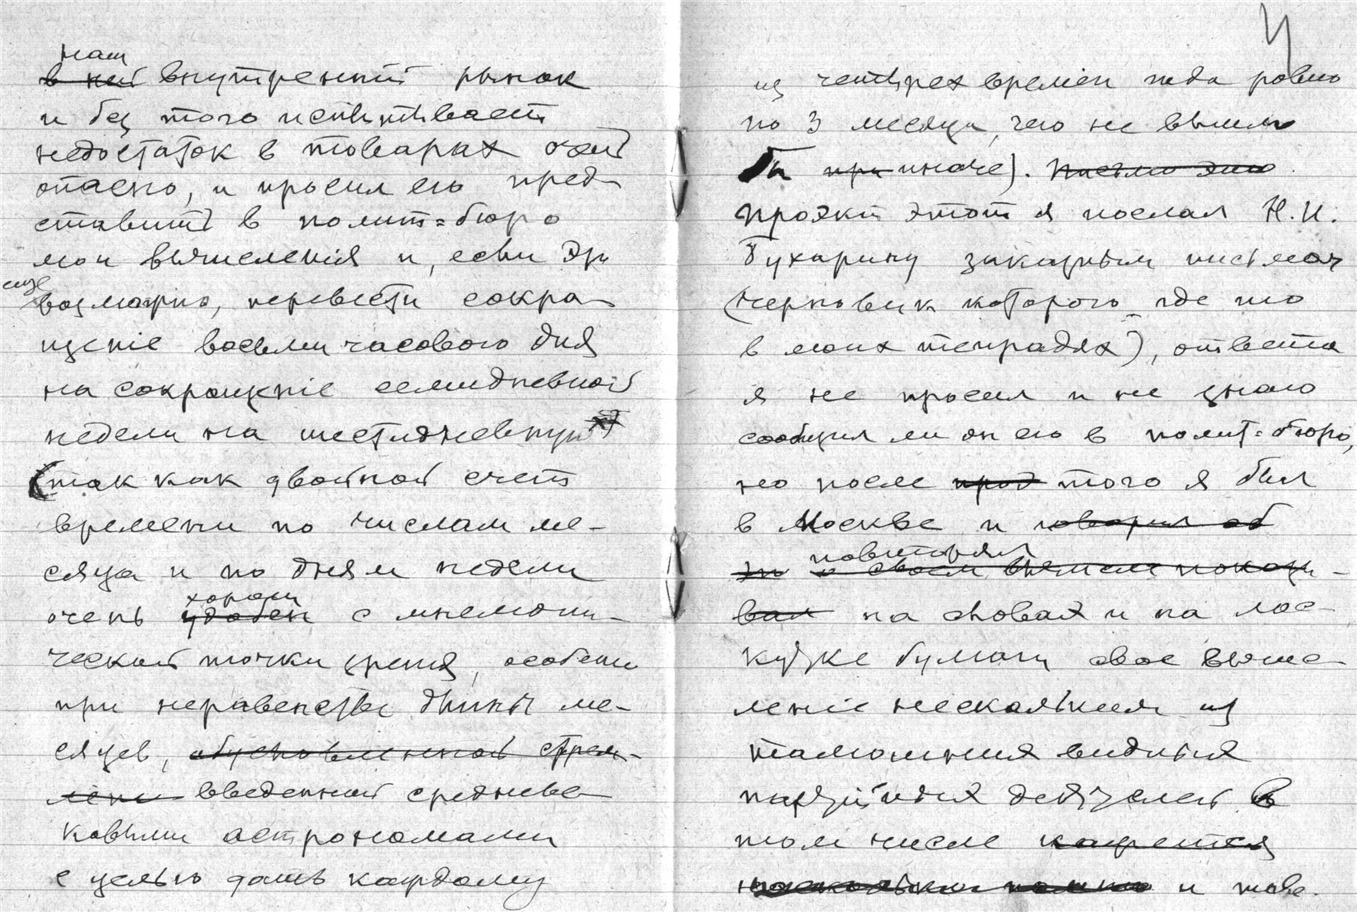 наш
в ней внутренний рынок
и без того испытывает
недостаток в товарах
опасно, и просил его пред-
ставить в полит=бюро
мои вычисления и, если
еще
возможно, перевести сокра-
щеніе восьми часового дня
на сокращеніе семидневной
недели на шестидневную
(так как двойной счет
времени по числам ме-
сяца и по дням недели
хорош
очень удобен с мнемони-
ческой точки зренія, особенно
при неравенстве длины ме-
сяцев, обусловленной стрем-
лени введенной средневе-
ковыми астрономами
с целью дать каждому
4
из четырех времен года ровно
по 3 месяца, чего не вышло
бы при иначе). Письмо это
Проэкт этот я послал Н. И.
Бухарину заказным письмом
(черновик которого где то
в моих тетрадях), ответа
я не просил и не знаю
сообщил ли он его в полит=бюро,
но после того я был
в Москве и говорил об
повторял
о своем вычисле показы-
вал на словах и на лос-
кутке бумаги свое вычис-
леніе нескольким из
тамошних видных
партійных деятелей в
том числе кажется
насколько помню и това-